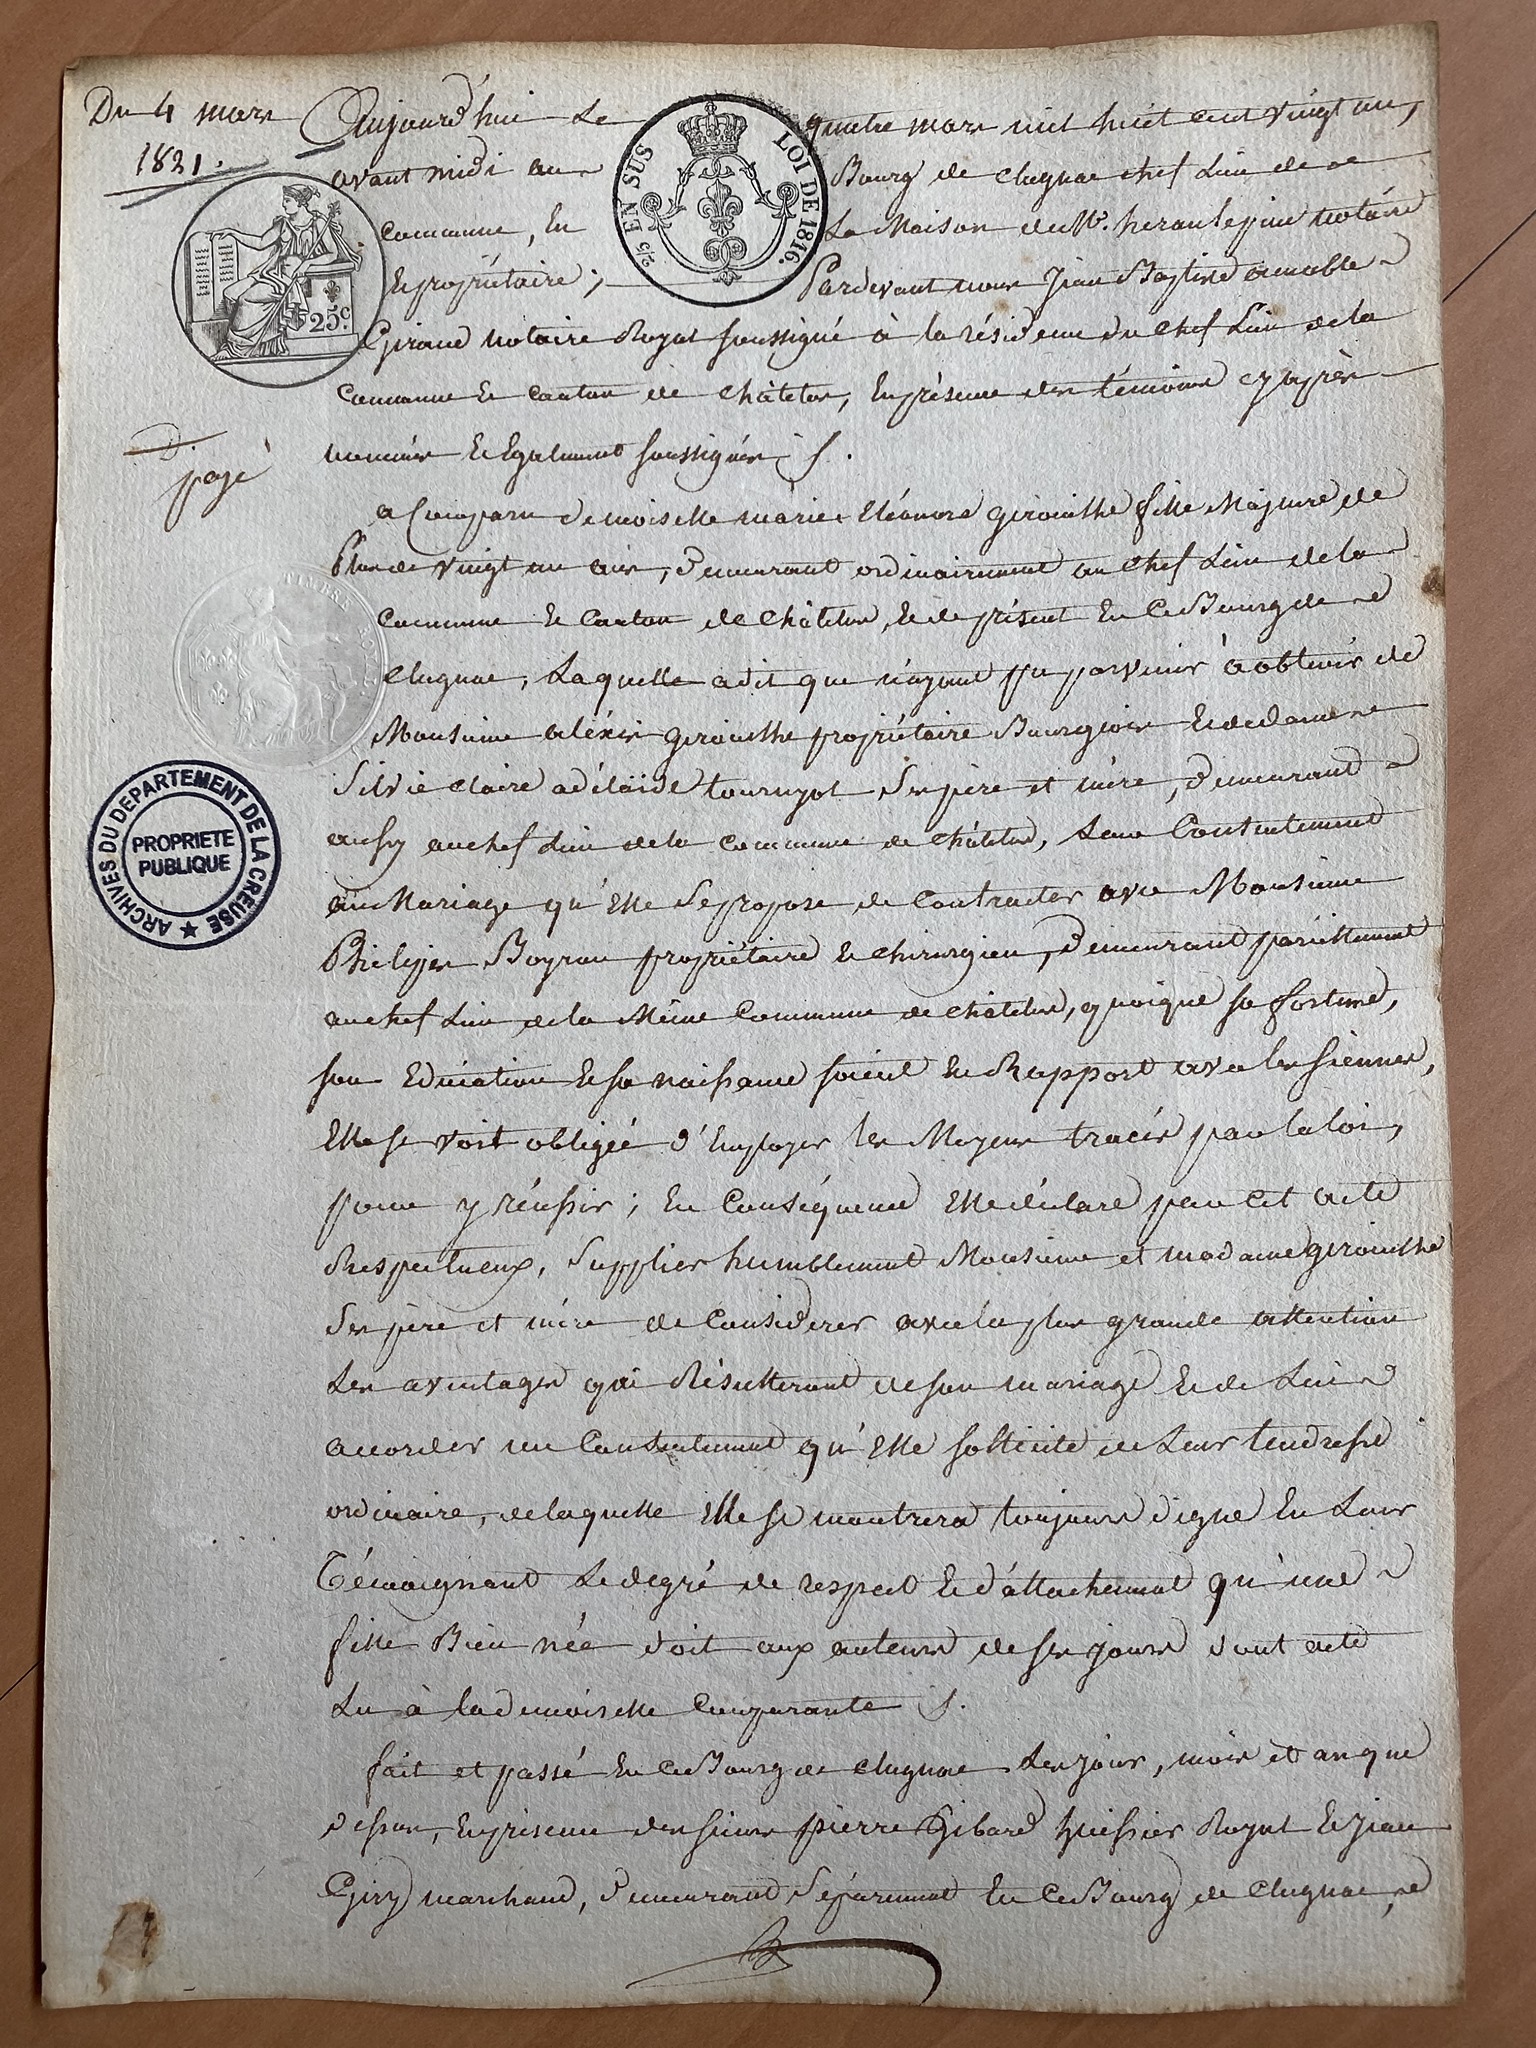 Du 4 mars
1821.
Aujourd'hui Le quatre mars mil huit cent vingt un,
avant midi au Bourg de Clugnac chef Lieu de
Commune, En La Maison de Mr. notaire
Et propriétaire; Pardevant nous Jean Baptiste amable
Giraud notaire Royal soussigné à la résidence du chef Lieu de la
Commune et Canton de Châtelus, En présence des témoins cy après
nommés Et Egalement soussignés
EN SUS
LOI DE 1816.
5/C
25c
payé
a Comparu Demoiselle marie Eléonore gerouilhe fille Majeure de
Plus de vingt un ans, Demeurant ordinairement au Chef Lieu de la
Commune Et Canton de Châtelus, Et de présent En Ce Bourg de
Clugnac, Laquelle a dit que n'ayant pu parvenir à obtenir de
Monsieur aléxis gerouilhe propriétaire Bourgeois Et de dame
Silvie claire adélaïde tournyol Ses père et mère, Demeurant
aussy au chef Lieu de la Commune de Châtelus, Leur Consentement
au Mariage qu'Elle Se propose de Contracter avec Monsieur
Philippes Boyron propriétaire Et Chirurgien, Demeurant pareillement
au chef Lieu de la Même Commune de Châtelus, quoique sa fortune,
son Education Et sa naissance soient En Rapport avec les siennes,
Elle se voit obligée d'Employer les Moyens tracés par la loi,
pour y réussir; En Conséquence Elle déclare par cet acte
Respectueux, Supplier humblement Monsieur et madame gerouilhe
Ses père et mère de Considérer avec la plus grande attention
Les avantages qui Résulteront de son mariage Et de Lui
accorder un Consentement qu'Elle sollicite de Leur tendresse
ordinaire, de laquelle Elle se montrera toujours digne En Leur
Témoignant Le degré de respect Et d'attachement qu'une
fille Bien née doit aux auteurs de ses jours dont acte
Lu à la demoiselle Comparante
fait et passé En Ce Bourg de Clugnac Les jour, mois et an que
dessus, En présence des sieurs pierre Gibard huissier Royal Et Jean
Giry marchand, Demeurant Séparément En Ce Bourg de Clugnac,
TIMBRE ROYAL
ARCHIVES DU DEPARTEMENT DE LA CREUSE
PROPRIETE
PUBLIQUE